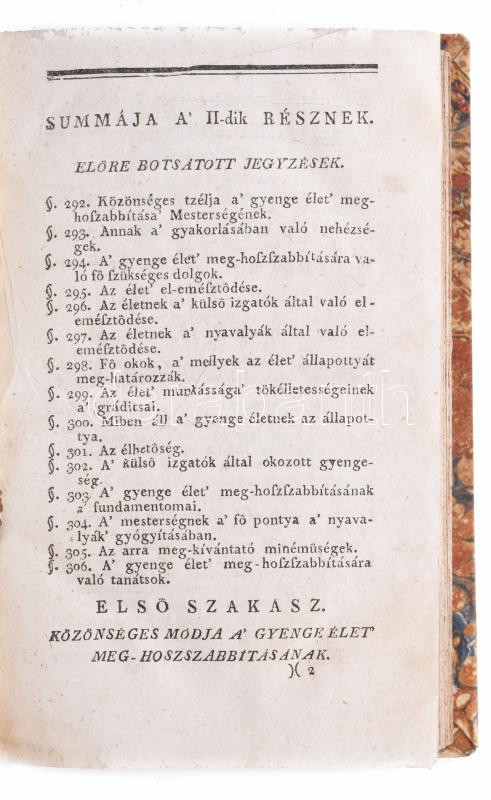 SUMMÁJA A' II-dik RÉSZNEK.
ELŐRE BOTSÁTOTT JEGYZÉSEK.
§. 292. Közönséges tzélja a' gyenge élet' meg-
hoſzabbítása' Mesterségének.
§. 293. Annak a' gyakorlásában való nehézsé-
gek.
§. 294. A' gyenge élet' meg-hoſzſzabbítására va-
ló fô szükséges dolgok.
§. 295. Az élet' el-eméſztôdése.
§. 296. Az életnek a' külsô izgatók által való el-
eméſztôdése.
§. 297. Az életnek a' nyavalyák által való el-
eméſztôdése.
§. 298. Fô okok, a' mellyek az élet' állapottyát
meg-határozzák.
§. 299. Az élet' munkássága' tökélletességeinek
a' gráditsai.
§. 300. Miben áll a' gyenge életnek az állapot-
tya.
§. 301. Az élhetôség.
§. 302. A' külsô izgatók által okozott gyenge-
ség.
§. 303. A' gyenge élet' meg-hoſzſzabbításának
a' fundamentomai.
§. 304. A' mesterségnek a' fô pontya a' nyava-
lyák' gyógyításában.
§. 305. Az arra meg-kívántató minémüségek.
§. 306. A' gyenge élet' meg-hoſzſzabbítására
való tanátsok.
ELSÔ SZAKASZ.
KÖZÖNSÉGES MÓDJA A' GYENGE ÉLET'
MEG-HOSZSZABBÍTÁSÁNAK.
)( 2